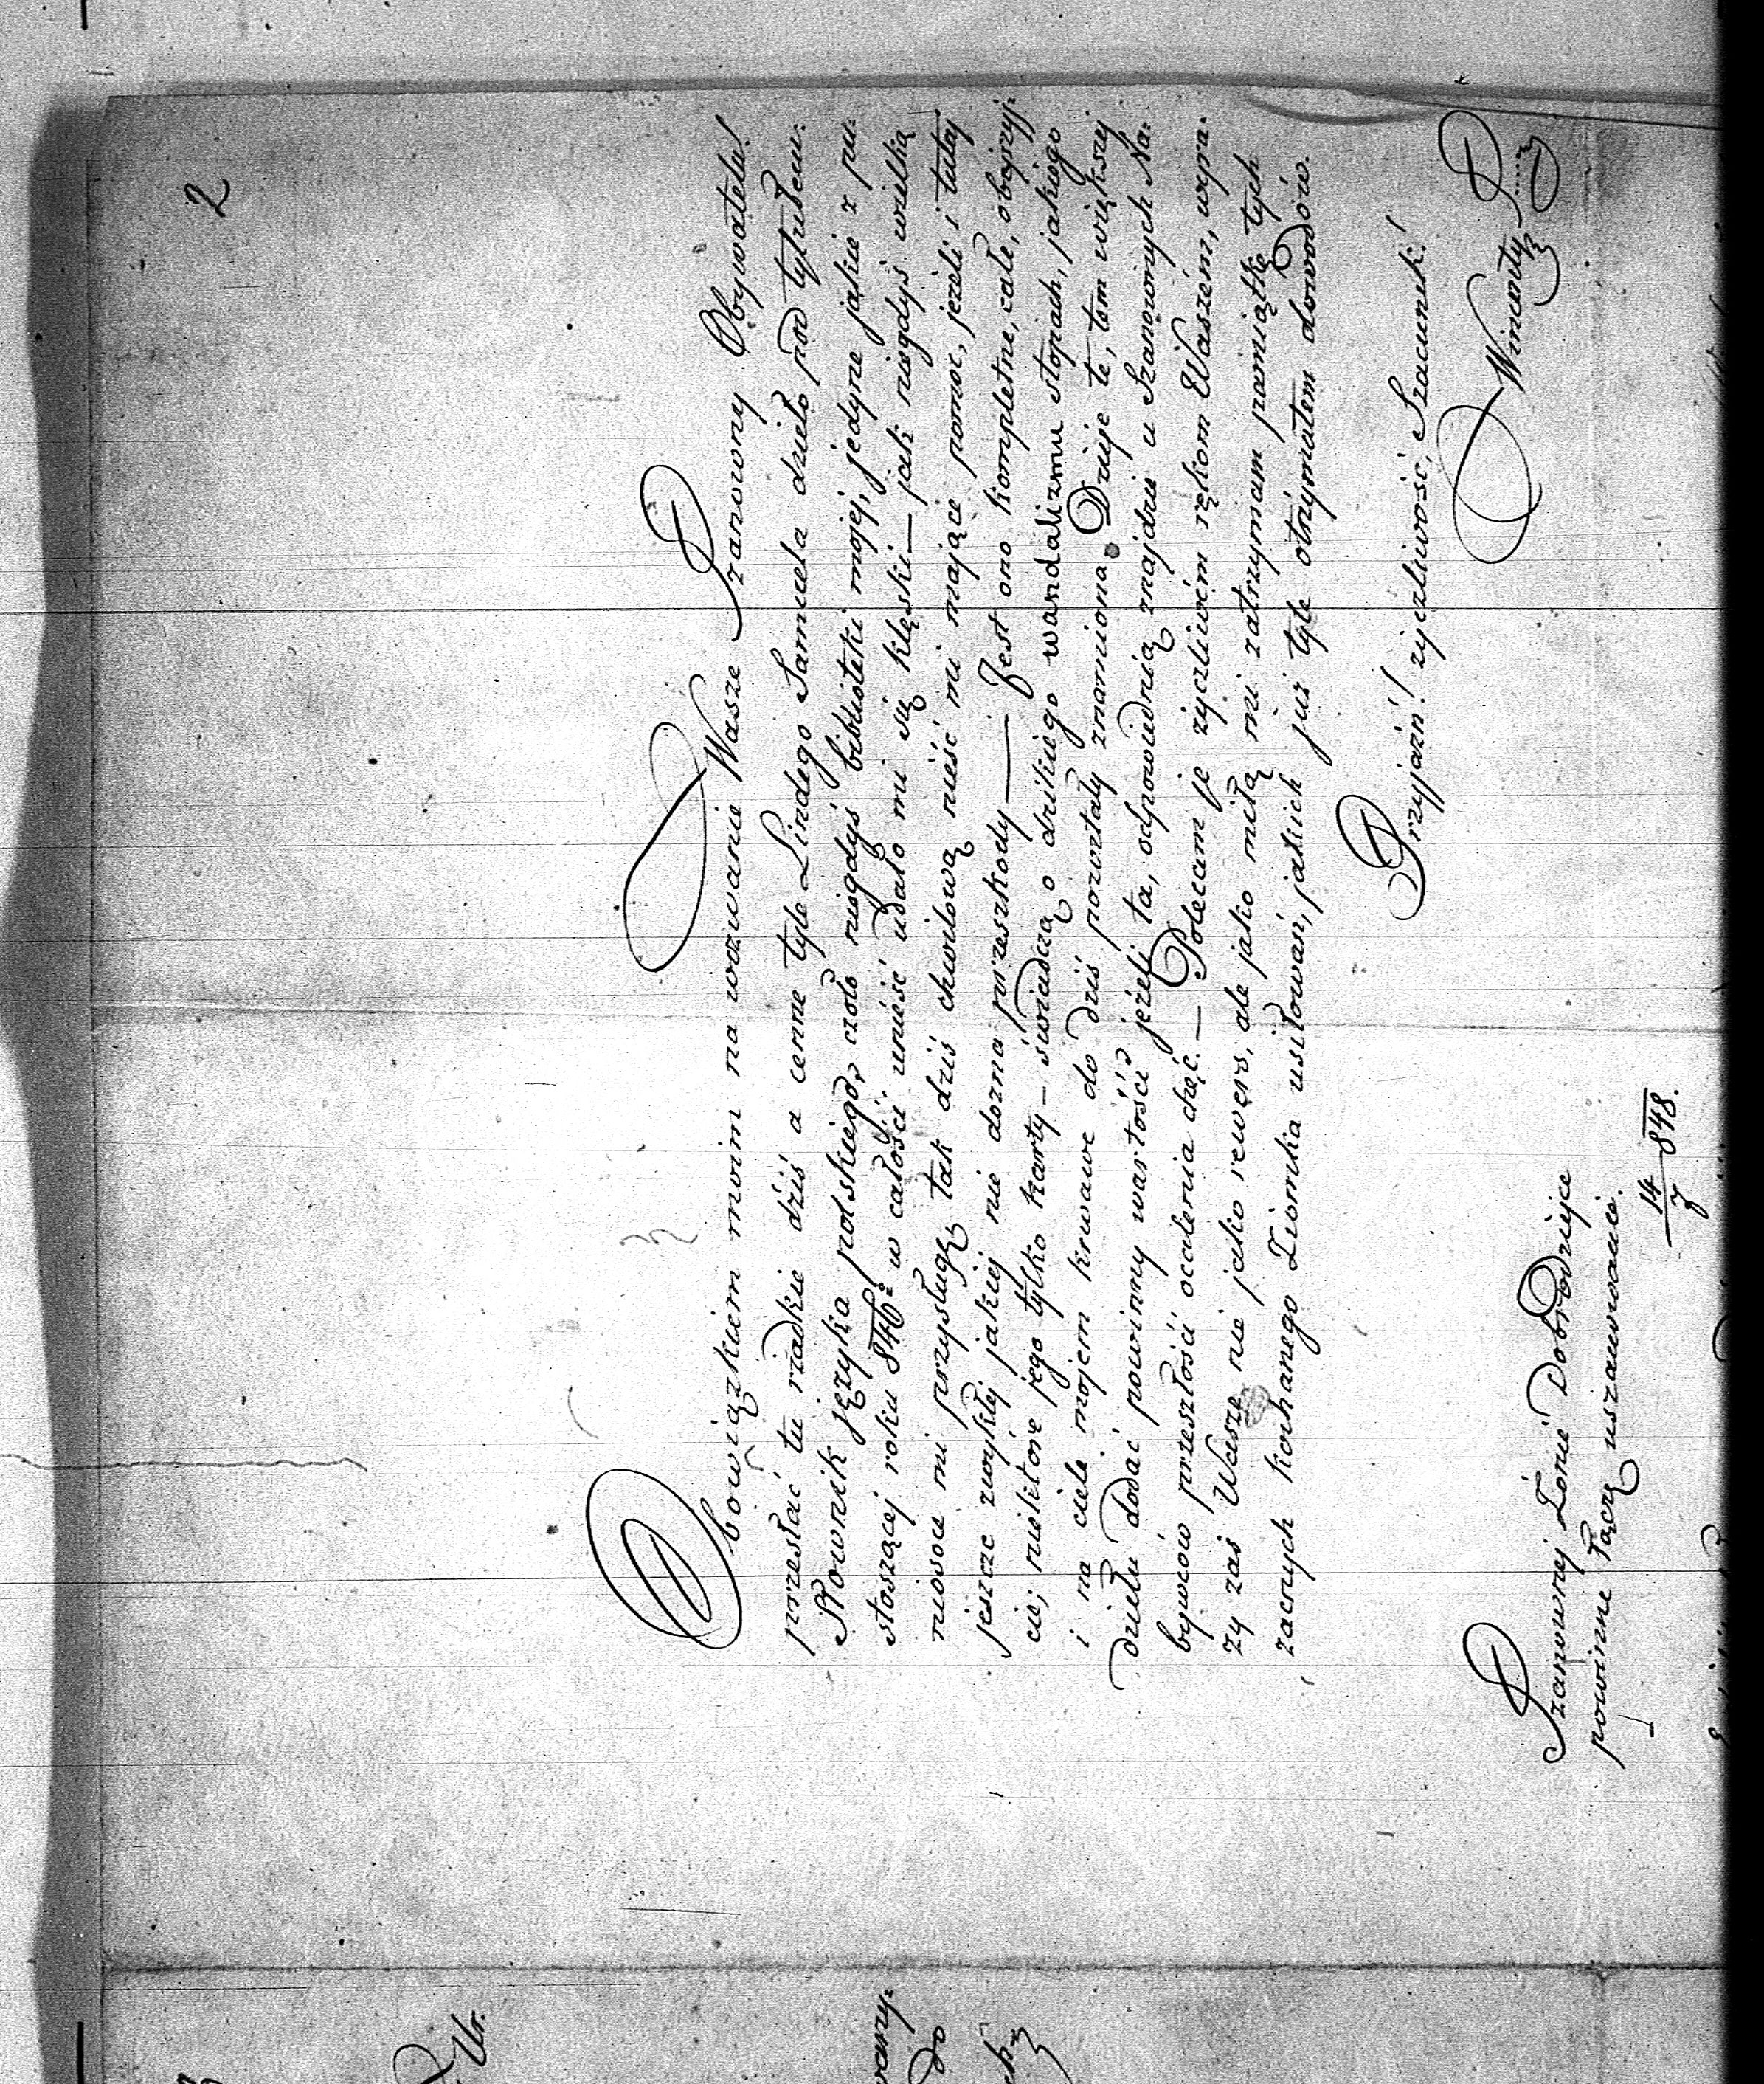 2
Obowiązkiem moim na wezwanie Wasze Szanowny Obywatelu!
przesłać tu rzadkie dziś a cenne tyle Lindego Samuela dzieło pod tytułem:
Słownik języka polskiego, czoło niegdyś biblioteki mojej, jedyne jakie z pu:
stoszącej roku 846º w całości unieść udało mi się klęski — jak niegdyś wielką
niosące mi przysługę tak dziś chwilową nieść mi mające pomoc, jeżeli i tutaj
jeszcze zwykłej jakiej nie dozna przeszkody — Jest ono kompletne, całe, obejrzyj:
cie; niektóre jego tylko karty – świadczą o dzikiego wandalizmu stopach, jakiego
i na ciele mojem krwawe do dziś pozostały znamiona. Dzieje te, tem większej
dziełu dodać powinny wartości jeżeli ta, odpowiednią znajdzie u Szanownych Na:
bywców przeszłości ocalenia chęć. — Polecam je życzliwem rękom Waszem, wyra:
zy zaś Wasze nie jako rewers, ale jako miłą mi zatrzymam pamiątkę tych
zacnych kochanego Ziomka usiłowań, jakich już tyle otrzymałem dowodów.
Przyjaźń! życzliwość, Szacunek!
Wincenty
Szanownej Żonie Dobrodziejce
powinne łączę uszanowanie.
14/7 848.